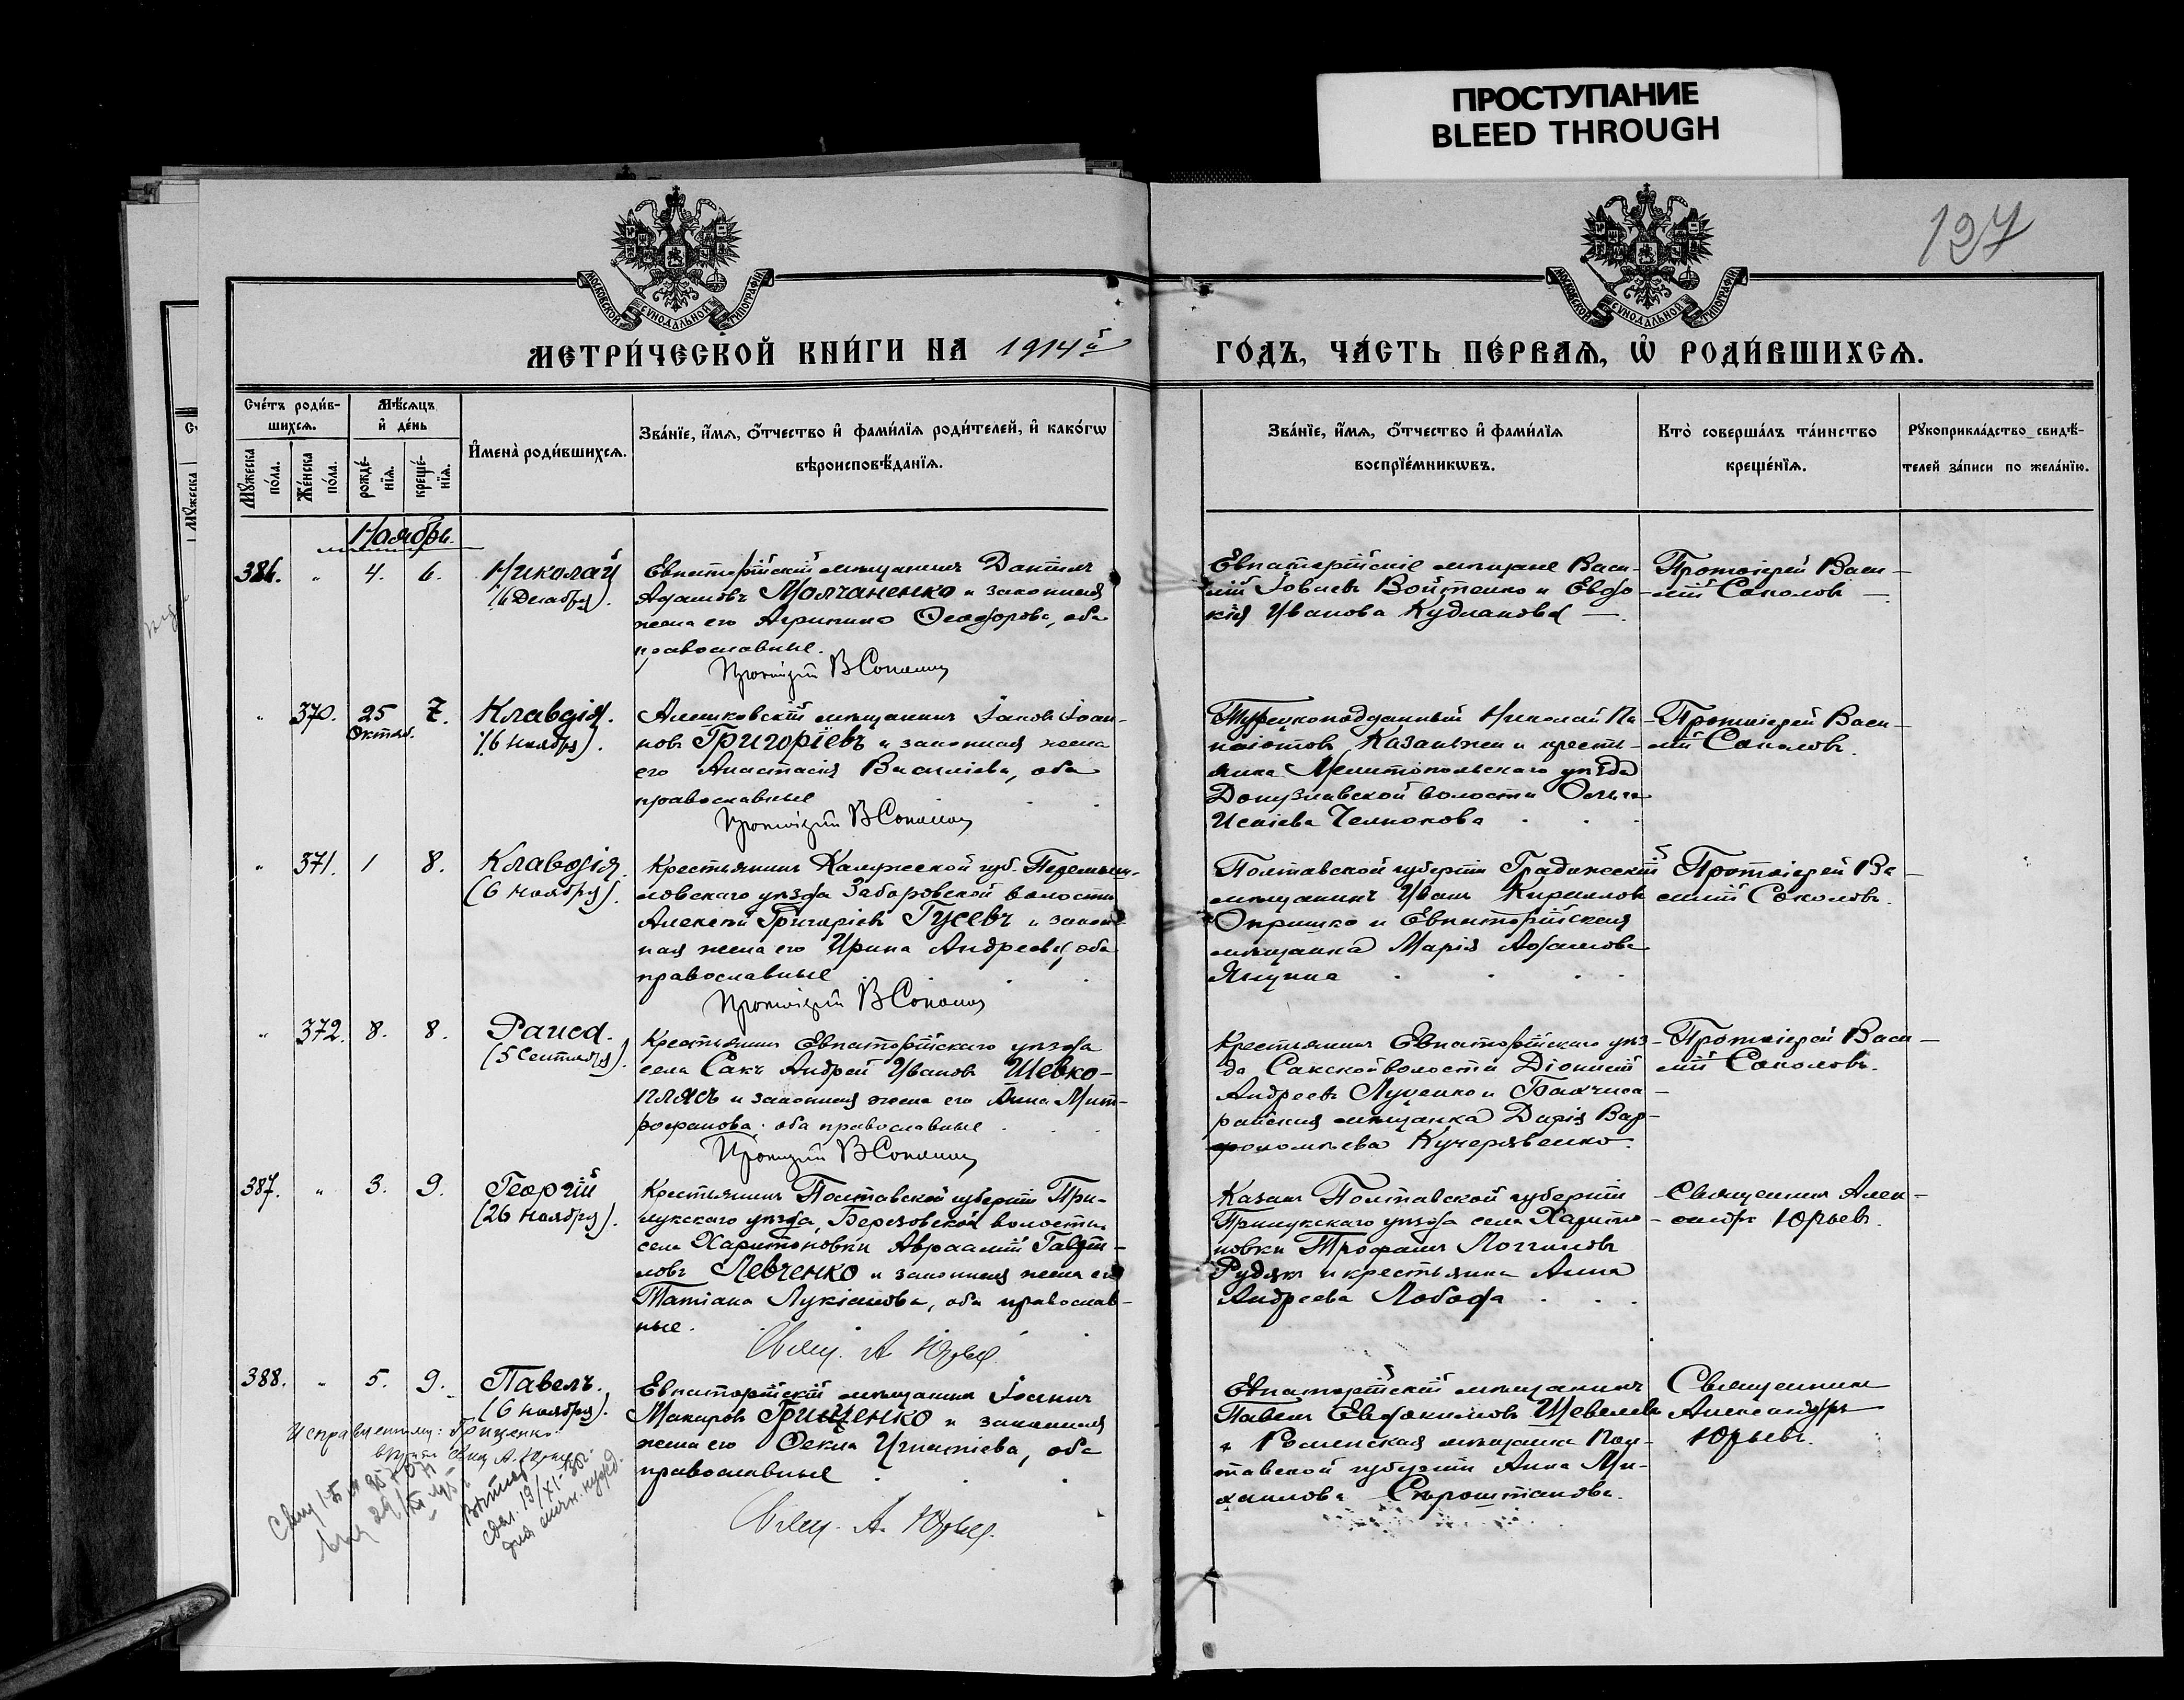 ПРОСТУПАНИЕ
BLEED THROUGH
127
МОСКОВСКОЙ СѴНОДАЛЬНОЙ ТИПОГРАФІИ
МОСКОВСКОЙ СѴНОДАЛЬНОЙ ТИПОГРАФІИ
МЕТРИ́ЧЕСКОЙ КНИ́ГИ НА 1914й
ГО́ДЪ, ЧА́СТЬ ПЕ́РВАѦ, Ѡ҆ РОДИ́ВШИХСѦ.
Сче́тъ роди́в-
шихсѧ.
Мѣ́сѧцъ
и҆ де́нь
Мꙋ́жеска по́ла.
Же́нска по́ла.
рожде́-нїѧ.
креще́-нїѧ.
И҆мена̀ роди́вшихсѧ.
Зва́нїе, и҆́мѧ, ѻ҆́тчество и҆ фами́лїѧ роди́телей, и҆ како́гѡ
вѣроисповѣ́данїѧ.
Зва́нїе, и҆́мѧ, ѻ҆́тчество и҆ фами́лїѧ
воспрїе́мникѡвъ.
Кто̀ соверша́лъ та́инство
креще́нїѧ.
Рꙋкоприкла́дство свидѣ́-
телей за́писи по жела́нїю.
Ноябрь.
386. " 4. 6. Николай
(6 Декабря).
Евпаторійскій мѣщанинъ
Адамовъ Молчаненко и законная
жена его Агрипина Ѳеодорова, оба
православные.
Протоіерей В Соколовъ
Евпаторійскіе мѣщане Васи-
лій Іовлевъ Войтенко и Евдо-
кія Иванова Кудланова
Протоіерей Васи-
лій Соколовъ
" 370. 25 Октяб. 7. Клавдія.
(6 Ноября).
Алешковскій мѣщанинъ Іаковъ Іоан-
новъ Григоріевъ и законная жена
его Анастасія Василіева, оба
православные
Протоіерей В Соколовъ
Турецкоподданный Николай Па-
наіотовъ Казанжи и кресть-
янка Мелитопольскаго уѣзда
волости Ольга
Исаіева Челнокова
Протоіерей Васи-
лій Соколовъ.
" 371. 1 8. Клавдія.
(6 Ноября).
Крестьянинъ Калужской губ. Перемышл-
ловскаго уѣзда Заборовской волости
Алексѣй Григоріевъ Гусевъ и закон-
ная жена его Ирина Андреева, оба
православные
Протоіерей В Соколовъ
Полтавской губерніи Градижскій
мѣщанинъ Иванъ Кирилловъ
Опришко и Евпаторійская
мѣщанка Марія Адамова
Протоіерей Ва-
силій Соколовъ.
" 372. 8. 8. Раиса.
(5 Сентября).
Крестьянинъ Евпаторійскаго уѣзда
села Сакъ Андрей Ивановъ Шевко-
плясъ и законная жена его Анна Мит-
рофанова. оба православные
Протоіерей В Соколовъ
Крестьянинъ Евпаторійскаго уѣз-
да Сакской волости Діонисій
Андреевъ Луценко и Бахчиса-
райская мѣщанка Дарія Вар-
ѳоломѣева Кучерявенко.
Протоіерей Васи-
лій Соколовъ.
387. " 3. 9. Георгій
(26 Ноября).
Крестьянинъ Полтавской губерніи При-
лукскаго уѣзда, Березовской волости
села Харитоновки Авраамій Гаврі-
ловъ Левченко и законная жена его
Татіана Лукіанова, оба православ-
ные.
Свящ. А Юрьевъ
Казакъ Полтавской губерніи
Прилукскаго уѣзда села Харито-
новки Трофимъ Логгиновъ
Рудякъ и крестьянка Анна
Андреева Лобода
Священникъ Алек-
сандръ Юрьевъ.
388. " 5. 9. Павелъ.
(6 Ноября).
Евпаторійскій мѣщанинъ Іоаннъ
Макаровъ Грищенко и законная
жена его Ѳекла Игнатіева, оба
православные
Свящ. А. Юрьевъ.
Евпаторійскій мѣщанинъ
Павелъ Евдокимовъ Шевелевъ
и Роменская мѣщанка Пол-
тавской губерніи Анна Ми-
хаилова
Священникъ
Александръ
Юрьевъ.
Исправленному: Грищенко
вѣрить Свящ А. Юрьевъ